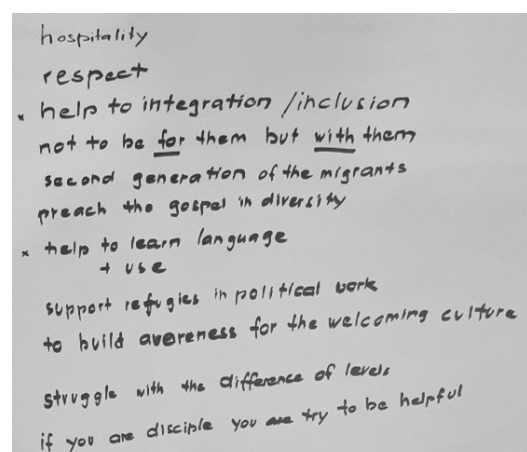 hospitality
respect
* help to integration /inclusion
not to be for them but with them
second generation of the migrants
preach the gospel in diversity
* help to learn language
+ use
support refugies in political work
to build avereness for the welcoming culture
struggle with the difference of levels
if you are disciple you are try to be helpful